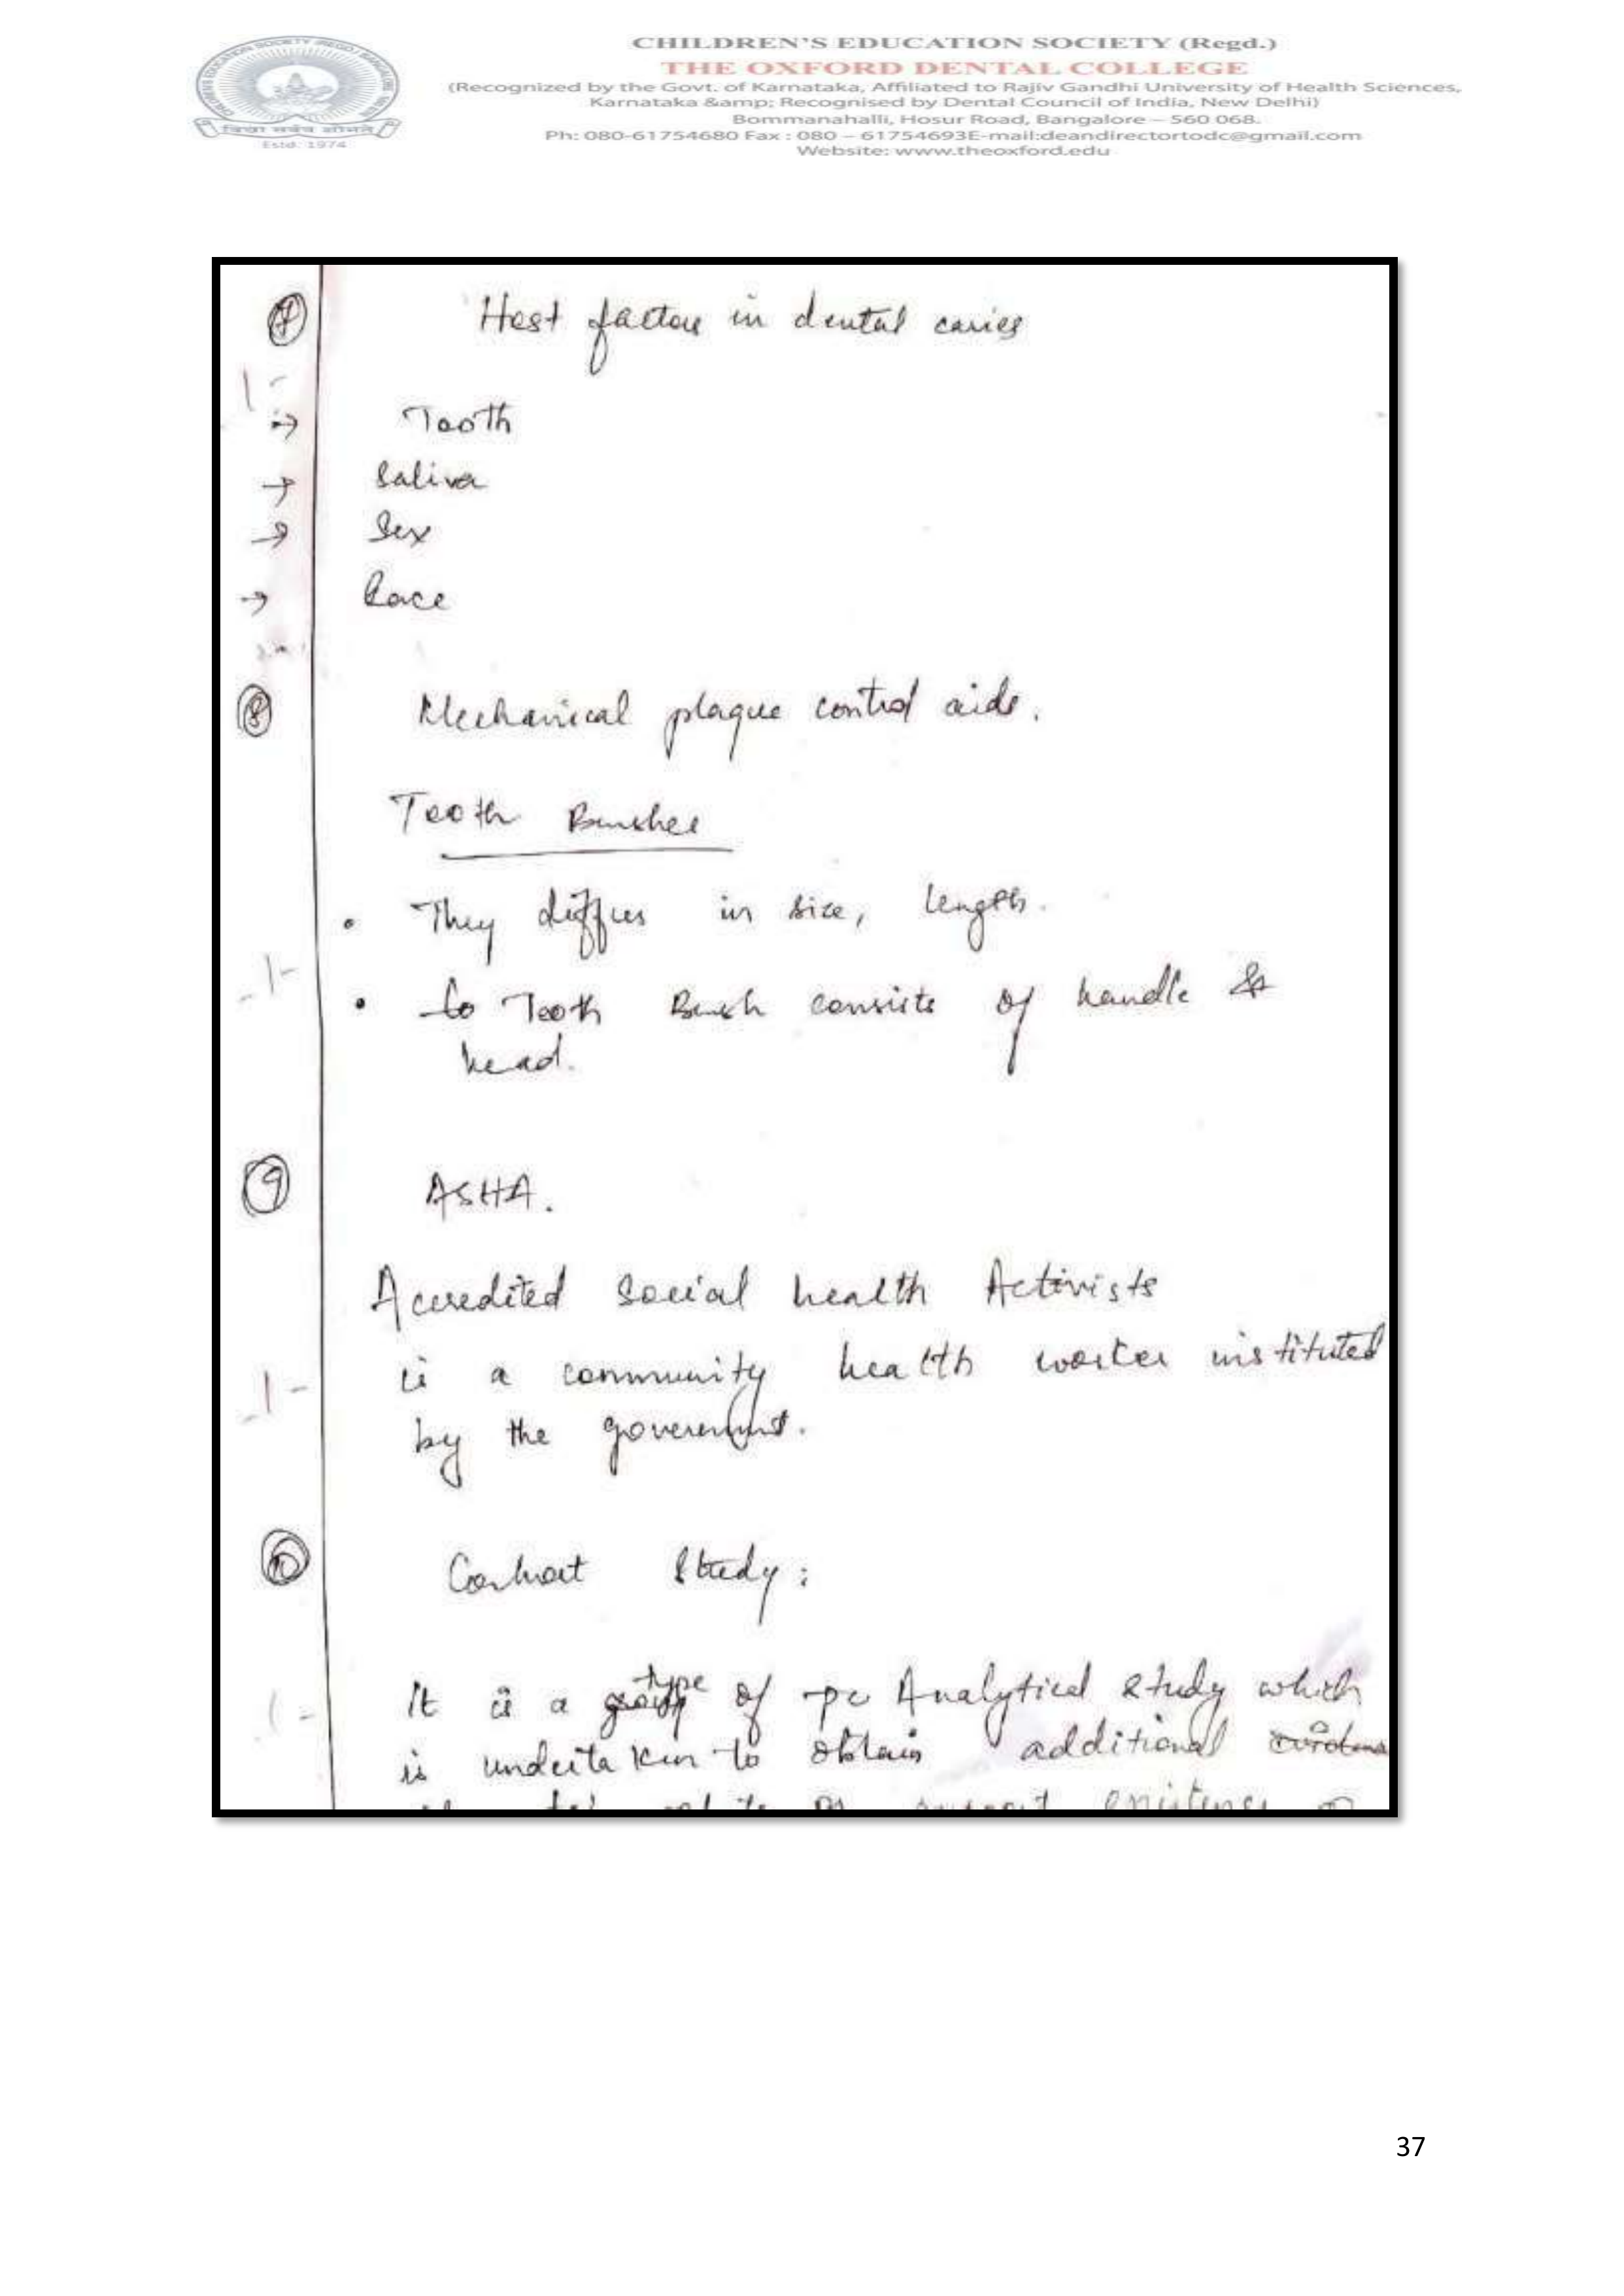 CHILDREN'S EDUCATION SOCIETY (Regd.)
THE OXFORD DENTAL COLLEGE
(Recognized by the Govt. of Karnataka, Affiliated to Rajiv Gandhi University of Health Sciences,
Karnataka &amp; Recognised by Dental Council of India, New Delhi)
Bommanahalli, Hosur Road, Bangalore – 560 068.
Ph: 080-61754680 Fax : 080 – 61754693E-mail:deandirectortodc@gmail.com
Website: www.theoxford.edu
Estd. 1974
7 Host factors in dental caries
1-
→ Tooth
→ Saliva
→ Sex
→ Race
8 Mechanical plaque control aids.
Tooth Brushes
• They differs in size, length.
-1-
• to Tooth Brush consists of handle &
head.
9 ASHA.
Accredited Social health Activists
is a community health worker instituted
-1-
by the government.
10 Cohort Study:
It is a type of Analytical study which
is undertaken to obtain additional
37